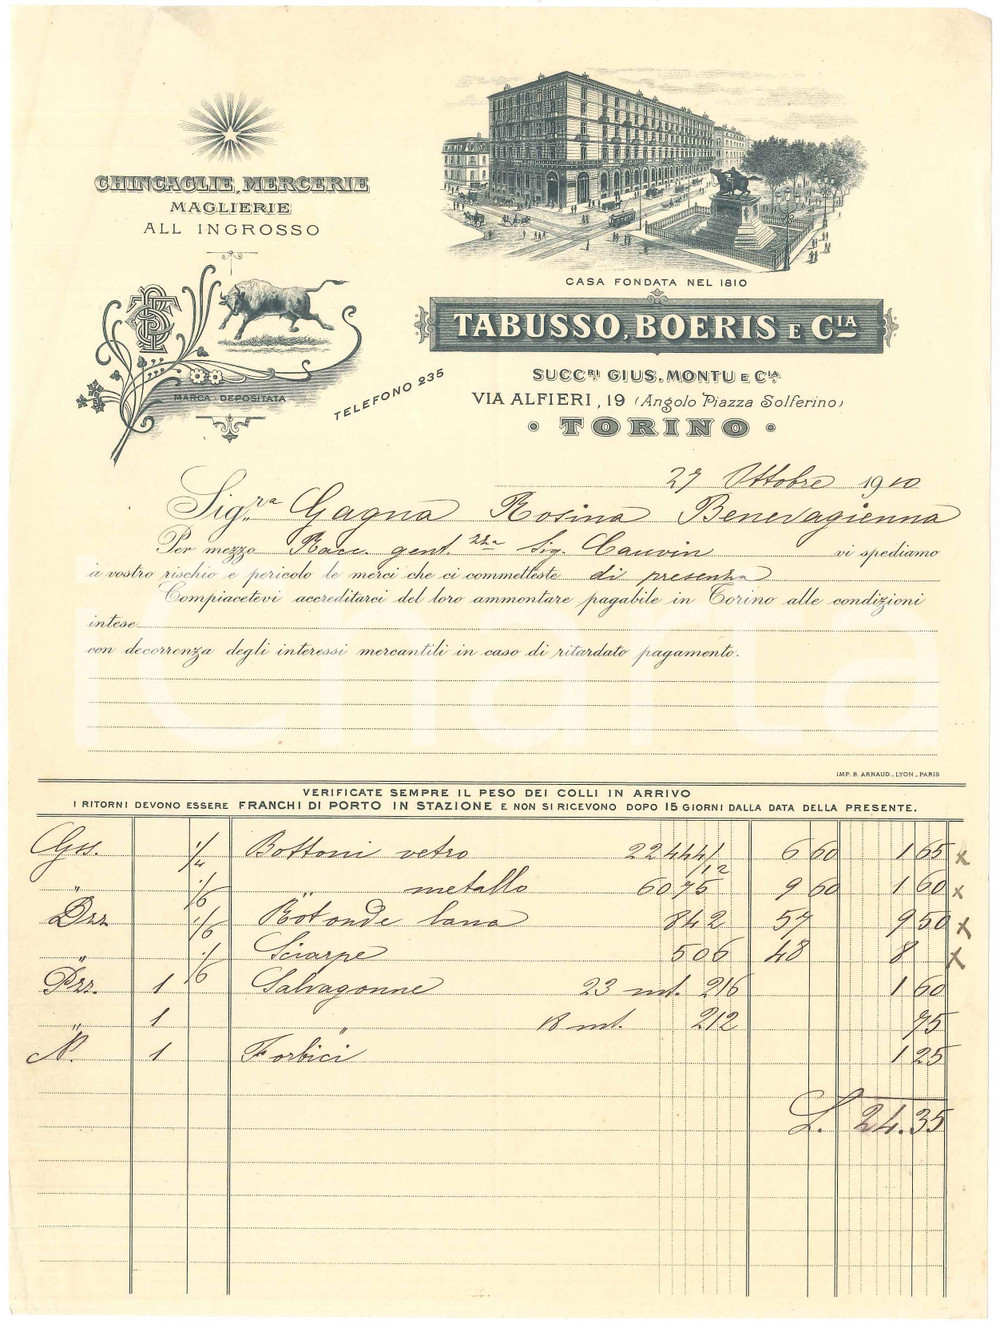 CHINCAGLIE, MERCERIE
MAGLIERIE
ALL INGROSSO
MARCA DEPOSITATA
TELEFONO 235
CASA FONDATA NEL 1810
TABUSSO, BOERIS E CIA
SUCCRI GIUS. MONTU E CIA
VIA ALFIERI, 19 (Angolo Piazza Solferino)
TORINO
27 Ottobre 1910
Sig.ra Gagna Rosina Benevagienna
Per mezzo Racc. gent. Sig. Cauvin vi spediamo
a vostro rischio e pericolo le merci che ci commetteste di presenza
Compiacetevi accreditarci del loro ammontare pagabile in Torino alle condizioni
intese
con decorrenza degli interessi mercantili in caso di ritardato pagamento.
iCharta
IMP. B. ARNAUD_LYON_PARIS
VERIFICATE SEMPRE IL PESO DEI COLLI IN ARRIVO
I RITORNI DEVONO ESSERE FRANCHI DI PORTO IN STAZIONE E NON SI RICEVONO DOPO 15 GIORNI DALLA DATA DELLA PRESENTE.
Grs. 1/4 Bottoni vetro 22444/12 6 60 1 65 x
" 1/6 " metallo 6075 9 60 1 60 x
Dzz 1/6 Rotonde lana 842 57 9 50 x
" 1/6 Sciarpe 506 48 8 x
Pzz. 1 Salvagonne 23 mt. 216 1 60
" 1 " 18 mt. 212 75
N. 1 Forbici 1 25
L. 24.35